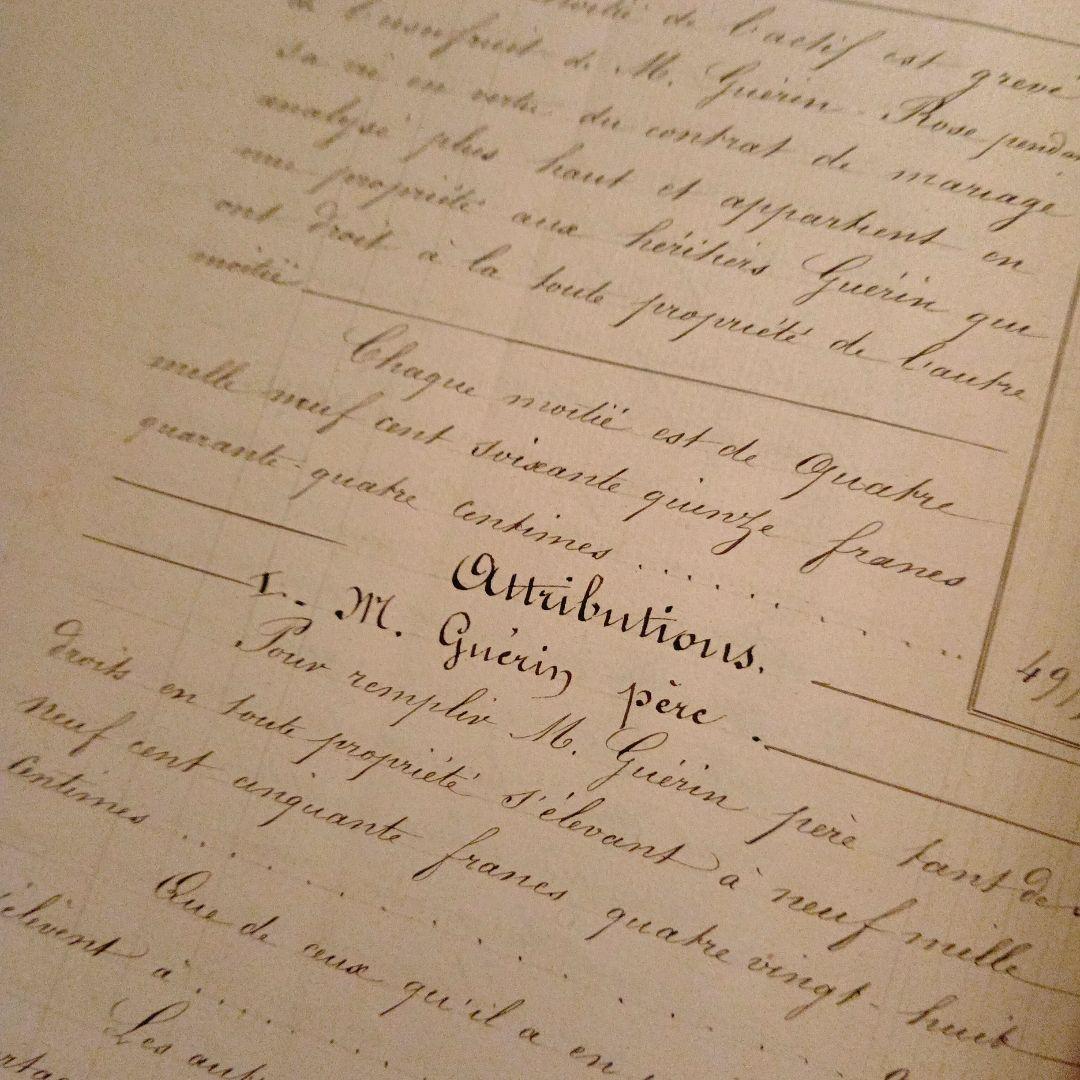 moitié de l'actif est grevé
à l'usufruit de M. Guérin Rose pendant
sa vie en vertu du contrat de mariage
analysé plus haut et appartient en
nue propriété aux héritiers Guérin qui
ont droit à la toute propriété de l'autre
moitié
Chaque moitié est de Quatre
mille neuf cent soixante quinze francs
quarante-quatre centimes
Attributions.
I. M. Guérin père.
Pour remplir M. Guérin père tant de
droits en toute propriété s'élevant à neuf mille
neuf cent cinquante francs quatre vingt-huit
centimes
Que de ceux qu'il a en
s'élèvent à
Les